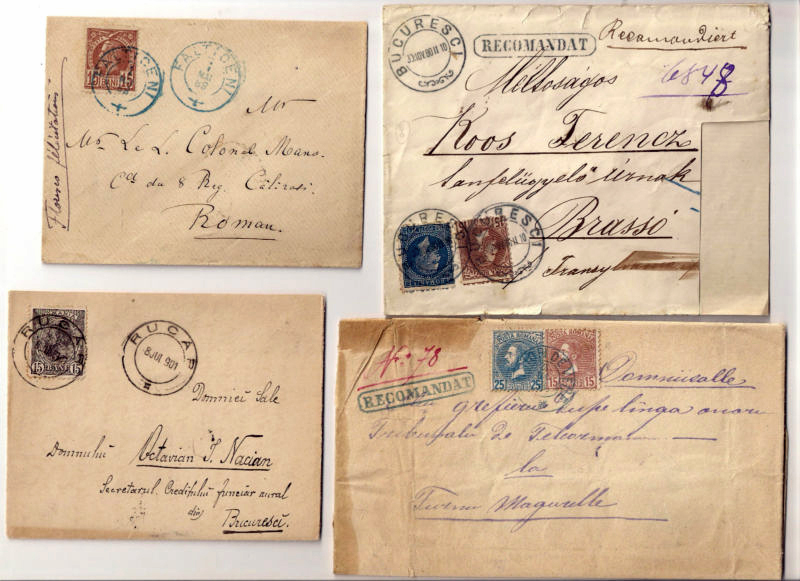 15 BANI 15
FALTICENI
FALTICENI
Mr
Mr Le L. Colonel Mano.
Cdt du 8 Reg. Călărasi
Roman.
BUCURESCI
RECOMANDAT
Recomandiert
6848
Méltoságos
Koos Ferencz
tanfelügyelő úrnak
Brassó
BUCURESCI
Transy
RUCAR
15 BANI 15
RUCAR
8 JUL 901
Domniei Sale
Domnului Octavian I. Nacian
Secretarul Creditului funciar rural
din
Bucuresci.
No 78
RECOMANDAT
POSTA ROMANA
25 25
POSTA ROMANA
15 15
Domniisalle
grefieru
Tribunalu de Teleorman
la
Turnu Magurelle